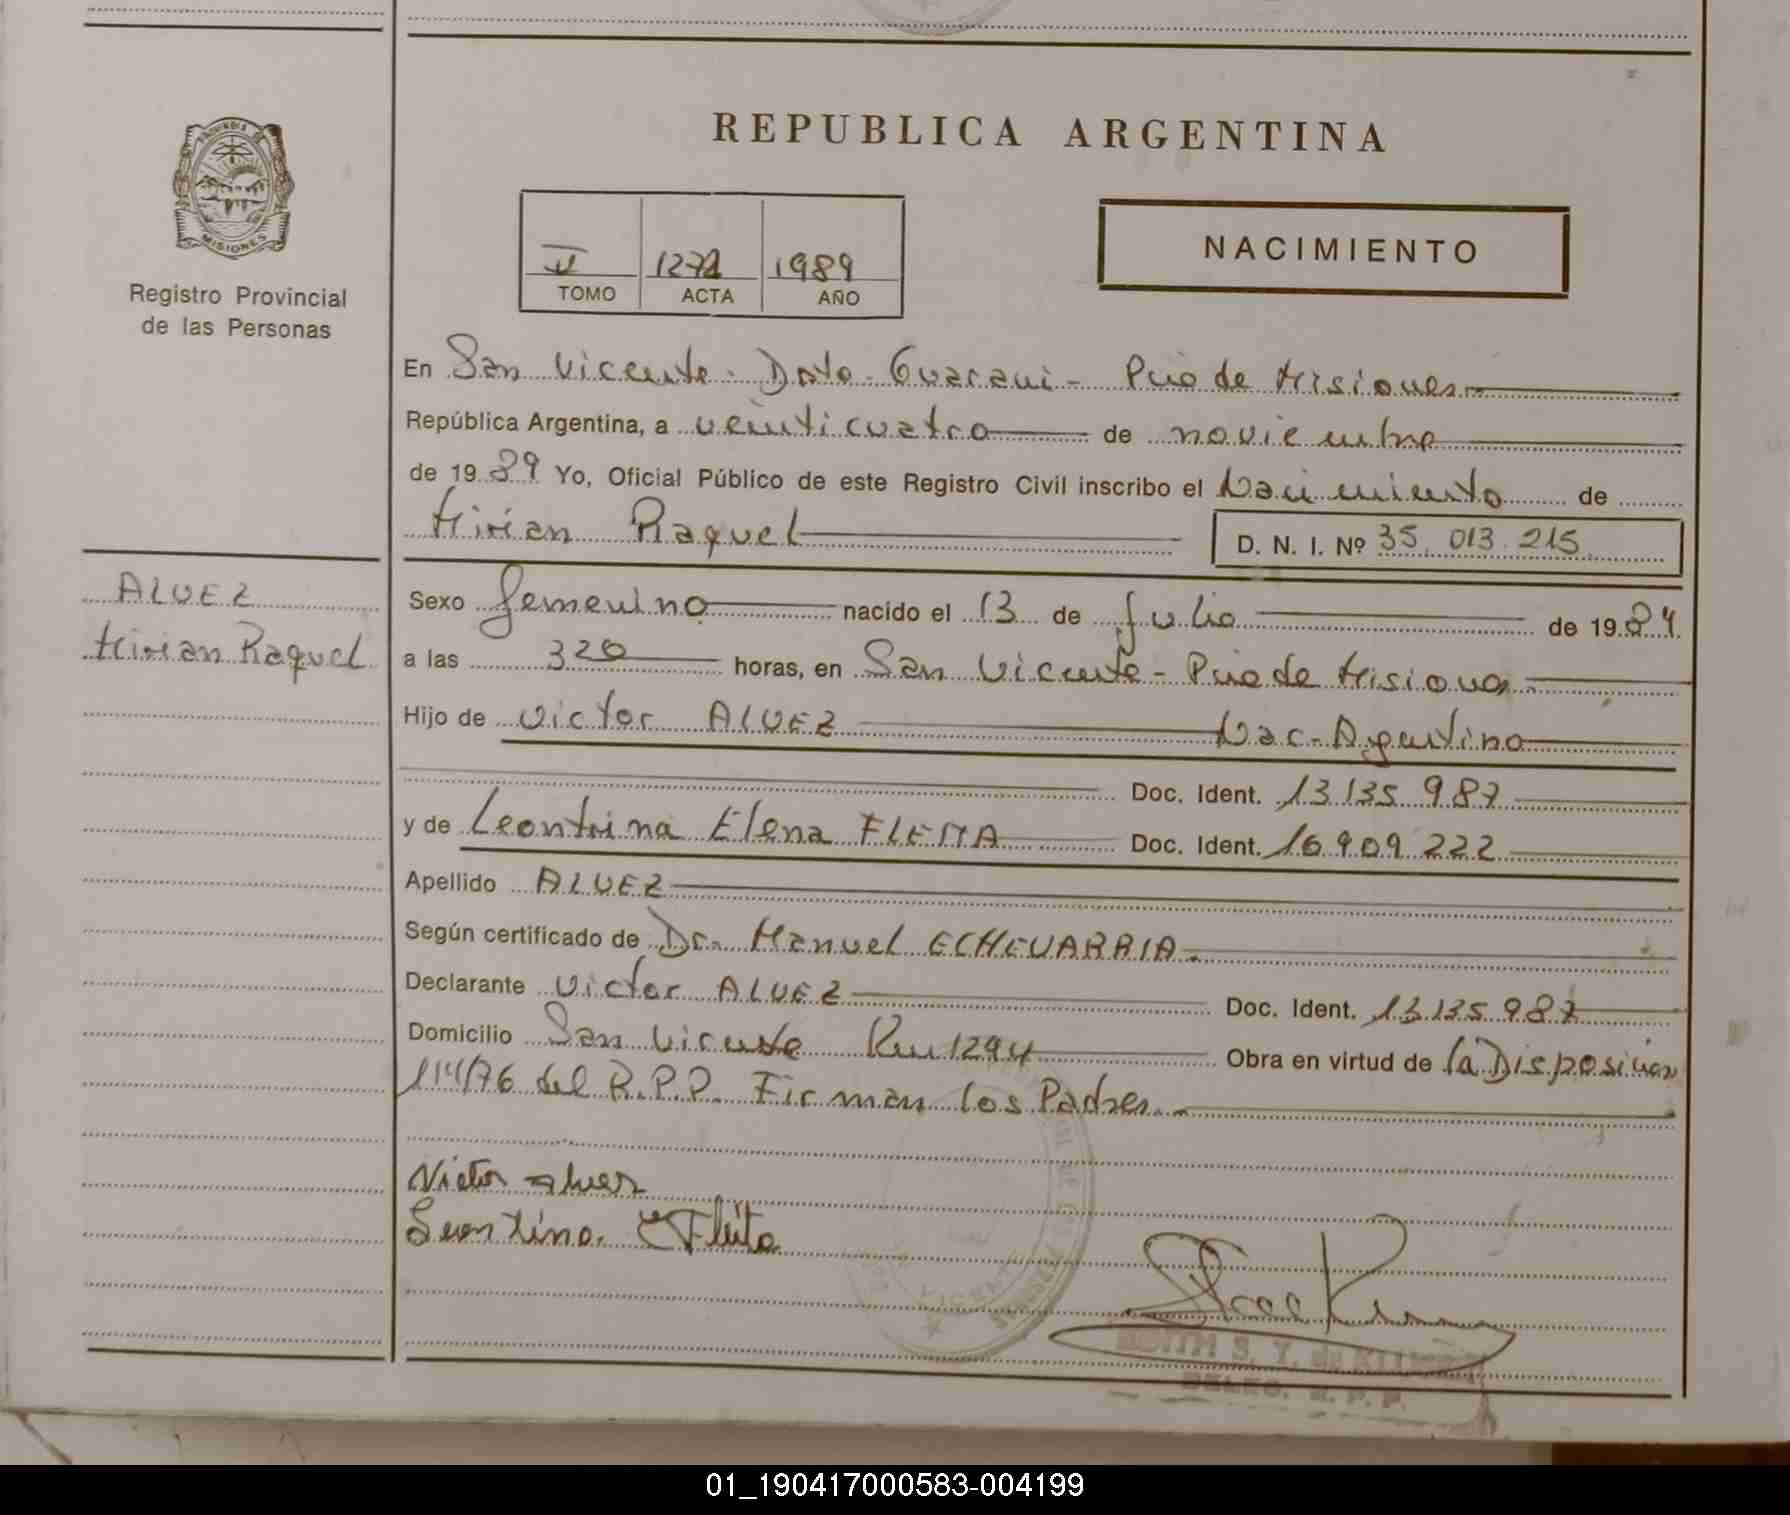 REPUBLICA ARGENTINA
PROVINCIA DE
MISIONES
Registro Provincial
de las Personas
NACIMIENTO
1989
TOMO ACTA AÑO
En San Vicente - Dpto - Guarani - Pcia de Misiones
República Argentina, a veinticuatro de noviembre
de 1989 Yo, Oficial Público de este Registro Civil inscribo el Nacimiento de
Mirian Raquel D. N. I. Nº 35.013.215
ALVEZ
Mirian Raquel
Sexo femenino nacido el 13 de Julio de 1989
a las 320 horas, en San Vicente - Pcia de Misiones
Hijo de Victor ALVEZ Nac. Argentino
Doc. Ident. 13.135.987
y de Leontina Elena FLEITA Doc. Ident. 16.909.222
Apellido ALVEZ
Según certificado de Dr. Manuel ECHEVARRIA.
Declarante Victor ALVEZ Doc. Ident. 13.135.987
Domicilio San Vicente Km 1294 Obra en virtud de la Disposición
114/76 del R.P.P. Firman los Padres.
Victor Alvez
Leontina E Fleita
EDITH S. Y. de
DELEG. R. P. P.
01_190417000583-004199